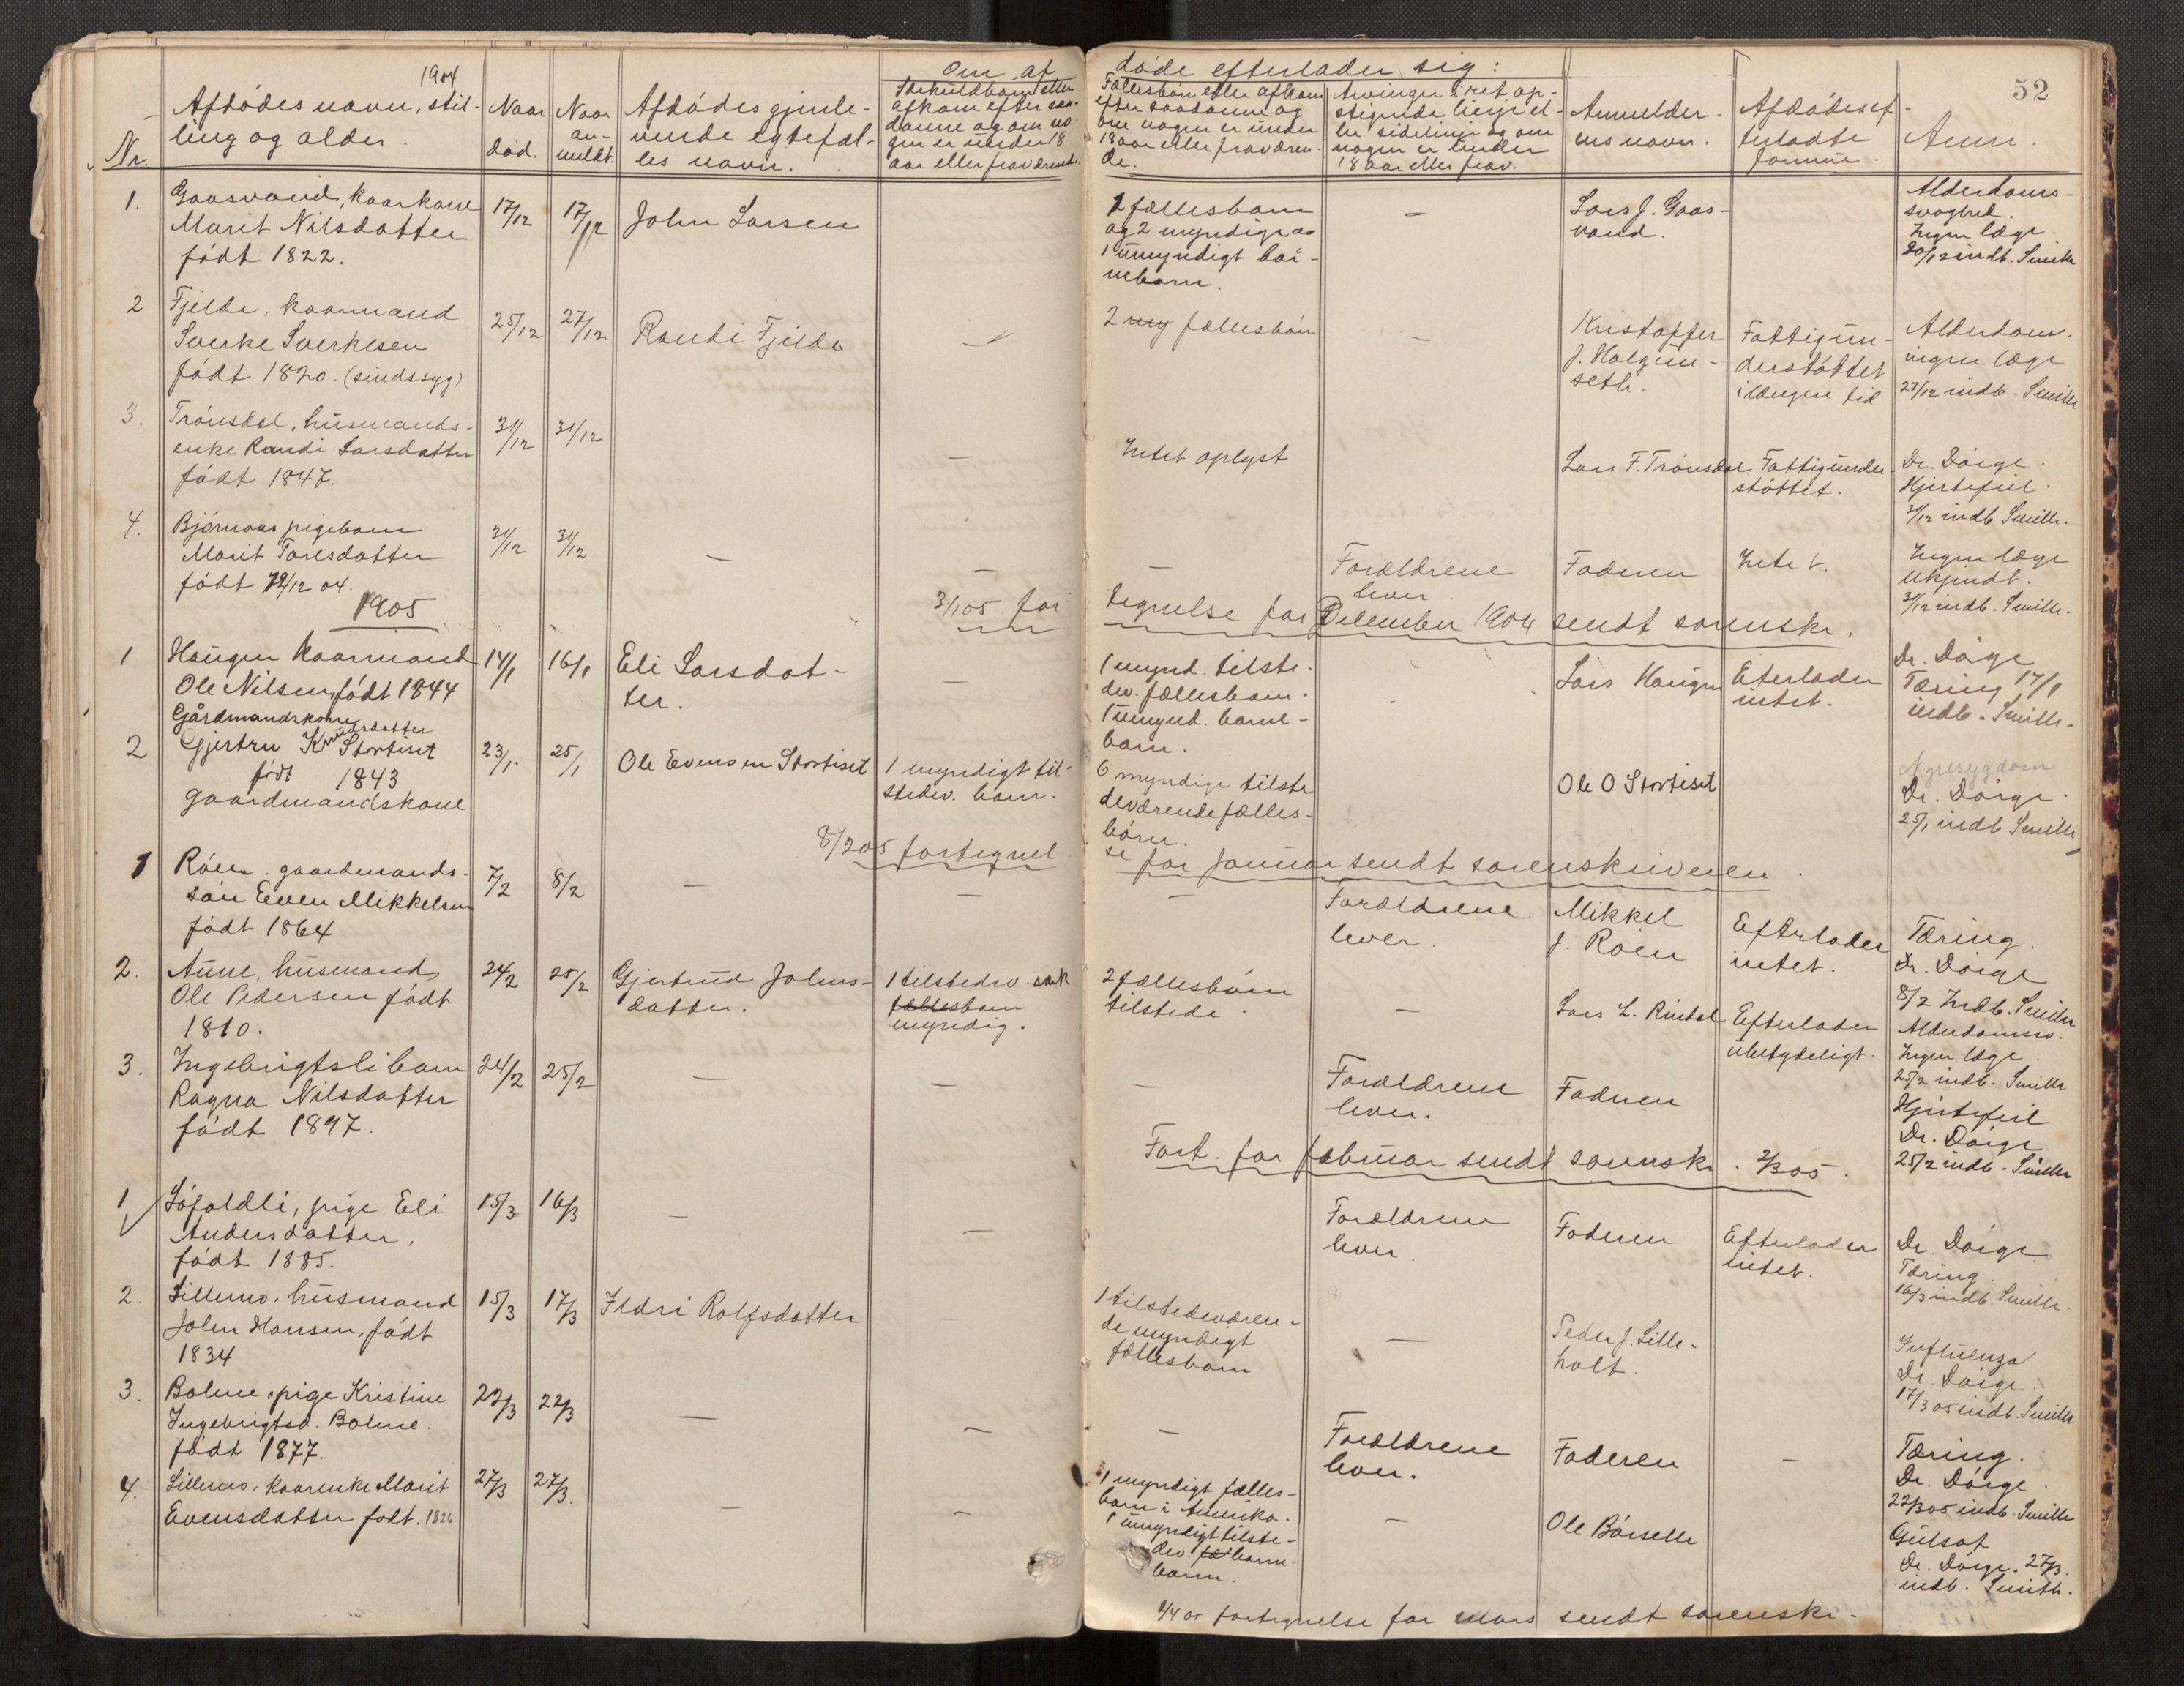 1904
52
Om af døde efterlader sig:
Nr.
Afdødes navn, stil-
ling og alder.
Naar
død.
Naar
an-
meldt.
Afdødes gjenle-
vende egtefæl-
les navn.
Særkuldbørn eller
afkom efter saa-
danne og om no-
gen er under 18
aar eller fraværende.
Fællesbørn eller afkom
efter saadanne og
om nogen er under
18 aar eller fraværen-
de.
Arvinger i ret op-
stigende linje el-
ler sidelinje og om
nogen er under
18 aar eller frav.
Anmelder-
ens navn.
Afdødes ef-
terladte
formue.
Anm.
1.
Gaasvand, kaarkone
Marit Nilsdatter
født 1822.
17/12
17/12
John Larsen
1 fællesbarn
og 2 myndige og
1 umyndigt bar-
nebarn.
—
Lars J. Gaas-
vand.
Alderdoms-
svaghed.
Ingen læge.
20/12 indb. Smith
2
Fjelde, kaarmand
Sverke Sverkesen
født 1820. (sindssyg)
25/12
27/12
Randi Fjelde
—
2 my fællesbørn
—
Kristoffer
J. Halgun-
seth.
Fattigun-
derstøttet
i længere tid
Alderdom.
ingen læge
27/12 indb. Smith
3.
Trønsdal, husmands-
enke Randi Larsdatter
født 1847.
31/12
31/12
—
Intet oplyst
Lars F. Trønsdal
Fattigunder-
støttet.
Dr. Døige.
Hjertefeil.
31/12 indb Smith.
4.
Bjørnaas pigebarn
Marit Toresdatter
født 12/12 04.
31/12
31/12
—
—
—
Forældrene
lever
Faderen
Intet.
Ingen læge
ukjendt.
31/12 indb. Smith.
1905
3/1 05 for tegnelse for December 1904 sendt sorenskr.
1
Haugen kaarmand
Ole Nilsen, født 1844
14/1
16/1
Eli Larsdat-
ter.
—
1 mynd. tilste-
dev. fællesbarn.
1 umynd. barne-
barn.
Lars Haugen
Efterlader
intet.
Dr. Døige
Tæring 17/1
indb. Smith.
2
Gårdmandskone
Gjertru Knudsdatter
Stortiset
født 1843
gaardmandskone
23/1.
25/1
Ole Evensen Stortiset
1 myndigt til-
stedev. barn.
6 myndige tilste
deværende fælles-
børn.
Ole O Stortiset
Nyresygdom
Dr. Døige.
25/1 indb. Smith
8/2 05 fortegnel se for Januar sendt sorenskriveren.
1
Røen. gaardmands-
søn Even Mikkelsen
født 1864
7/2
8/2
—
—
—
Forældrene
lever.
Mikkel
J. Røen
Efterlader
intet.
Tæring.
Dr. Døige
8/2 Indb. Smith
2.
Aune, husmand
Ole Pedersen født
1810.
24/2
25/2
Gjertrud Johns-
datter.
1 tilstedev. særk
fællesbarn
myndig.
2 fællesbørn
tilstede.
—
Lars L. Rindal
Efterlader
ubetydeligt.
Alderdomssv.
Ingen læge.
25/2 indb. Smith
3.
Ingebrigtsli barn
Ragna Nilsdatter
født 1897.
24/2
25/2
—
—
—
Forældrene
lever.
Faderen
Hjertefeil
Dr. Døige
25/2 indb. Smith
Fort. for februar sendt sorenskr. 2/3 05.
1
Løfaldli, pige Eli
Andersdatter,
født 1885.
15/3
16/3
—
—
Forældrene
lever.
Faderen
Efterlader
intet.
Dr. Døige
Tæring.
16/3 indb. Smith.
2.
Lillemo. husmand
John Hansen, født
1834
15/3
17/3
Ildri Rolfsdatter
1 tilstedeværen-
de myndigt
fællesbarn
—
Peder J. Lille-
holt.
Influenza
Dr. Døige.
17/3 05 indb. Smith
3.
Bolme, pige Kristine
Ingebrigtsd. Bolme.
født 1877.
22/3
22/3
—
—
—
Forældrene
lever.
Faderen
—
Tæring.
Dr. Døige.
22/3 05 indb. Smith
4.
Lillemo, kaarenke Marit
Evensdatter født. 1826
27/3
27/3.
—
—
1 myndigt fælles-
barn i Amerika.
1 umyndigt tilste-
dev. fæ barne-
barn.
—
Ole Børseth
Gulsot
Dr. Døige. 27/3.
indb. Smith.
2/4 05 fortegnelse for mars sendt sorenskr.